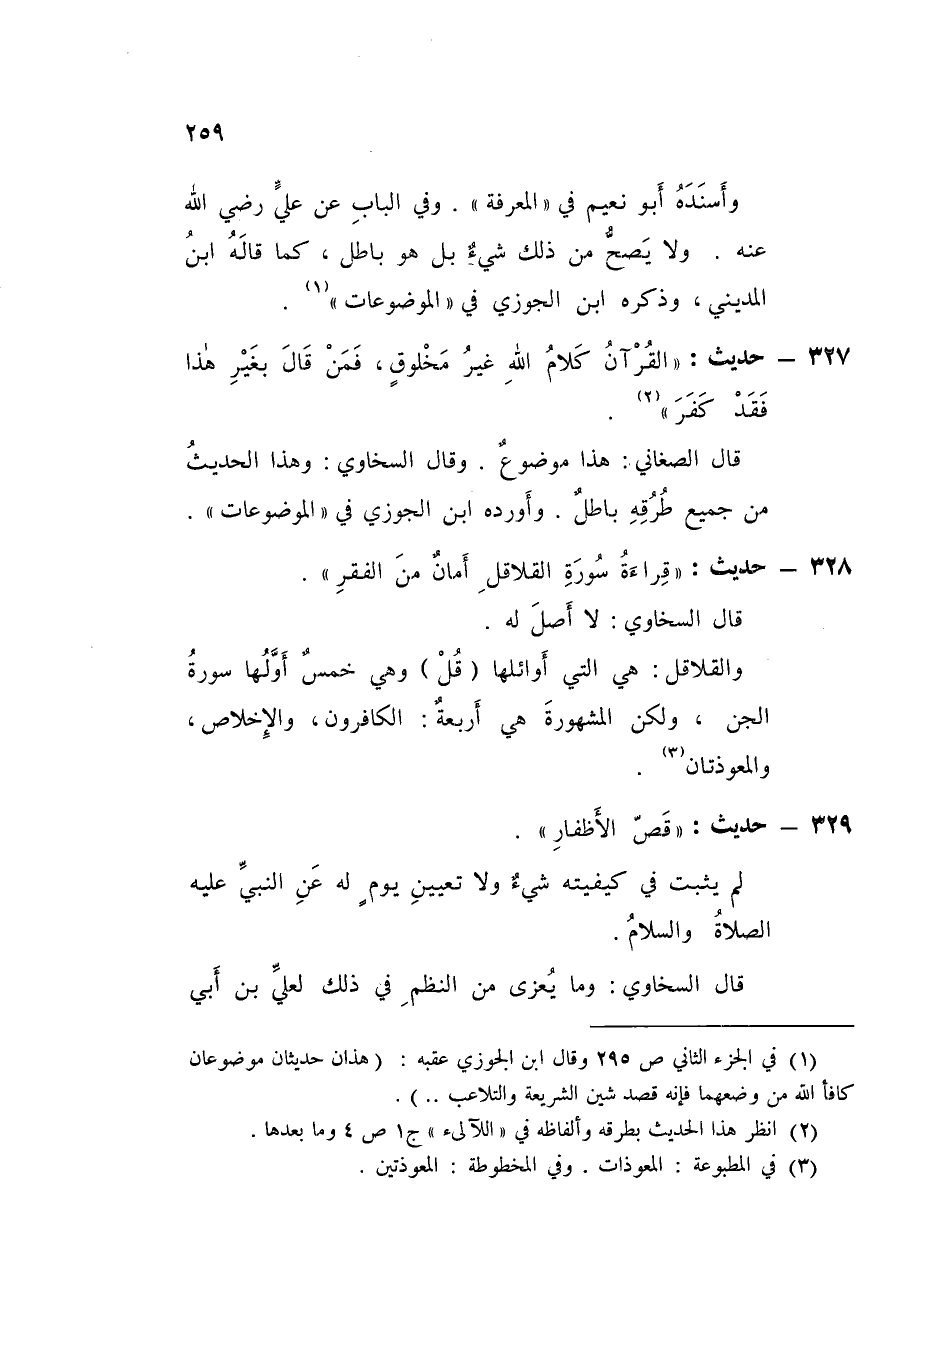 ٢٥٩
وأَسنَدَهُ أَبو نعيم في «المعرفة» . وفي البابِ عن عليٍّ رضي الله
عنه . ولا يَصحُّ من ذلك شيءٌ بل هو باطل ، كما قالَهُ ابنُ
المديني ، وذكره ابن الجوزي في «الموضوعات»(١) .
٣٢٧ – حديث : «القُرْآنُ كَلامُ اللهِ غيرُ مَخْلوقٍ ، فَمَنْ قَالَ بغَيْرِ هٰذا
فَقَدْ كَفَرَ»(٢) .
قال الصغاني : هذا موضوعٌ . وقال السخاوي : وهذا الحديثُ
من جميع طُرُقِهِ باطلٌ . وأَورده ابن الجوزي في «الموضوعات» .
٣٢٨ – حديث : «قِراءَةُ سُورَةِ القلاقلِ أَمانٌ منَ الفقرِ» .
قال السخاوي : لا أَصلَ له .
والقلاقل : هي التي أَوائلها (قُلْ) وهي خمسٌ أَوَّلُها سورةُ
الجن ، ولكن المشهورةَ هي أَربعةٌ : الكافرون ، والإِخلاص ،
والمعوذتان(٣) .
٣٢٩ – حديث : «قَصّ الأَظفارِ» .
لم يثبت في كيفيته شيءٌ ولا تعيينِ يومٍ له عَنِ النبيِّ عليه
الصلاةُ والسلامُ .
قال السخاوي : وما يُعزى من النظمِ في ذلك لعليِّ بن أَبي
(١) في الجزء الثاني ص ٢٩٥ وقال ابن الجوزي عقبه : (هذان حديثان موضوعان
كافأ الله من وضعهما فإنه قصد شين الشريعة والتلاعب ..) .
(٢) انظر هذا الحديث بطرقه وألفاظه في «اللآلىء» ج١ ص ٤ وما بعدها .
(٣) في المطبوعة : المعوذات . وفي المخطوطة : المعوذتين .